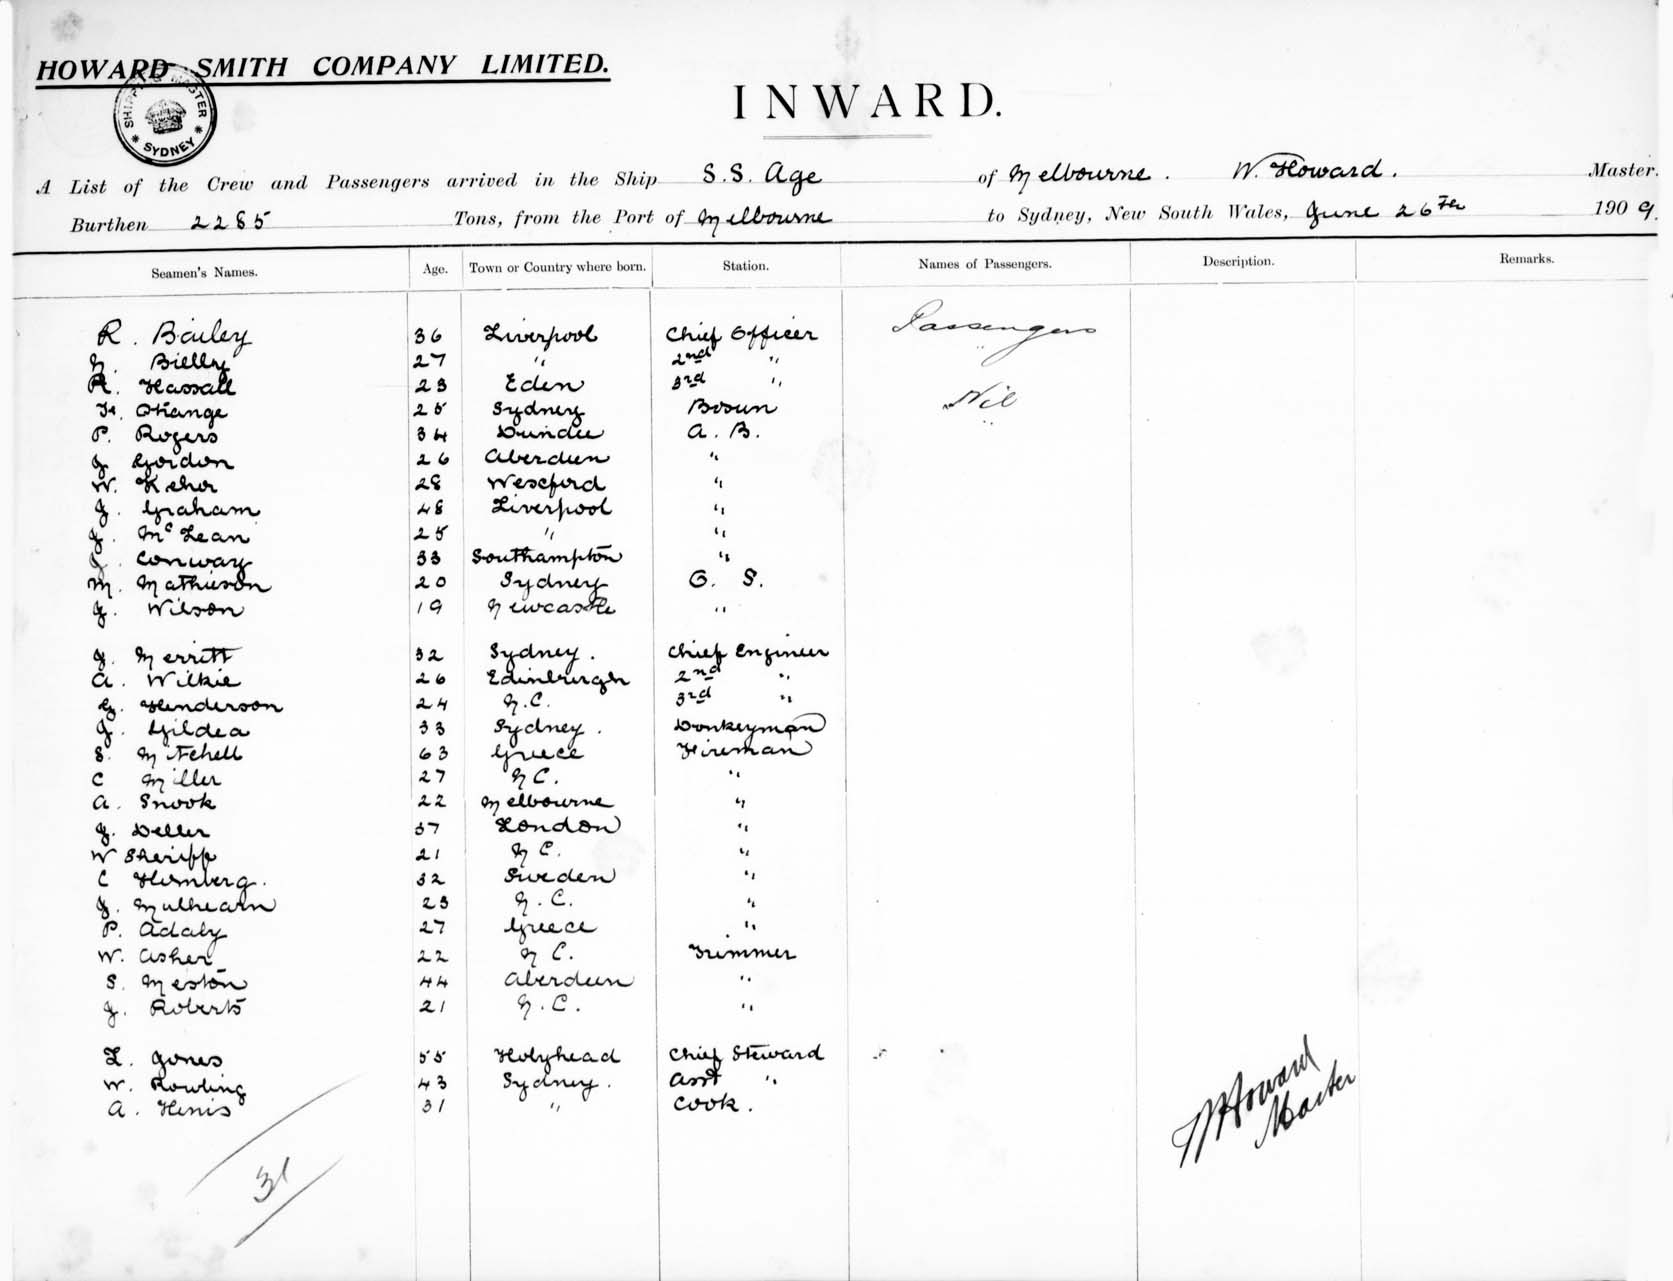 HOWARD SMITH COMPANY LIMITED.
SHIPPING MASTER
SYDNEY
INWARD.
A List of the Crew and Passengers arrived in the Ship S.S. Age of Melbourne. W. Howard. Master.
Burthen 2285 Tons, from the Port of Melbourne to Sydney, New South Wales, June 26th 1909.
Seamen's Names. Age. Town or Country where born. Station. Names of Passengers. Description. Remarks.
R. Bailey 36 Liverpool Chief Officer Passengers
Bielby 27 " 2nd " "
R. Hassall 23 Eden 3rd "
H. Strange 25 Sydney Bosun Nil
P. Rogers 34 Dundee A. B. "
J. Gordon 26 Aberdeen "
W. Kehor 28 Wexford "
J. Graham 48 Liverpool "
J. McLean 25 " "
J. Conway 33 Southampton "
M. Mathieson 20 Sydney O. S.
J. Wilson 19 Newcastle "
J. Merritt 32 Sydney. Chief Engineer
A. Wilkie 26 Edinburgh 2nd "
G. Henderson 24 N.C. 3rd "
J. Gildea 33 Sydney. Donkeyman
S. Mitchell 63 Greece Fireman
C Miller 27 N C. "
A. Snook 22 Melbourne "
J. Deller 37 London "
W Sheriff 21 N C. "
C Holmberg. 32 Sweden "
J. Mulhearn 23 N. C. "
P. Adaly 27 Greece "
W. Asher 22 N C. Trimmer
S. Meston 44 Aberdeen "
J. Roberts 21 N. C. "
L. Jones 55 Holyhead Chief Steward
W. Rowling 43 Sydney. Asst "
A. Henis 31 " Cook.
W Howard
Master
31